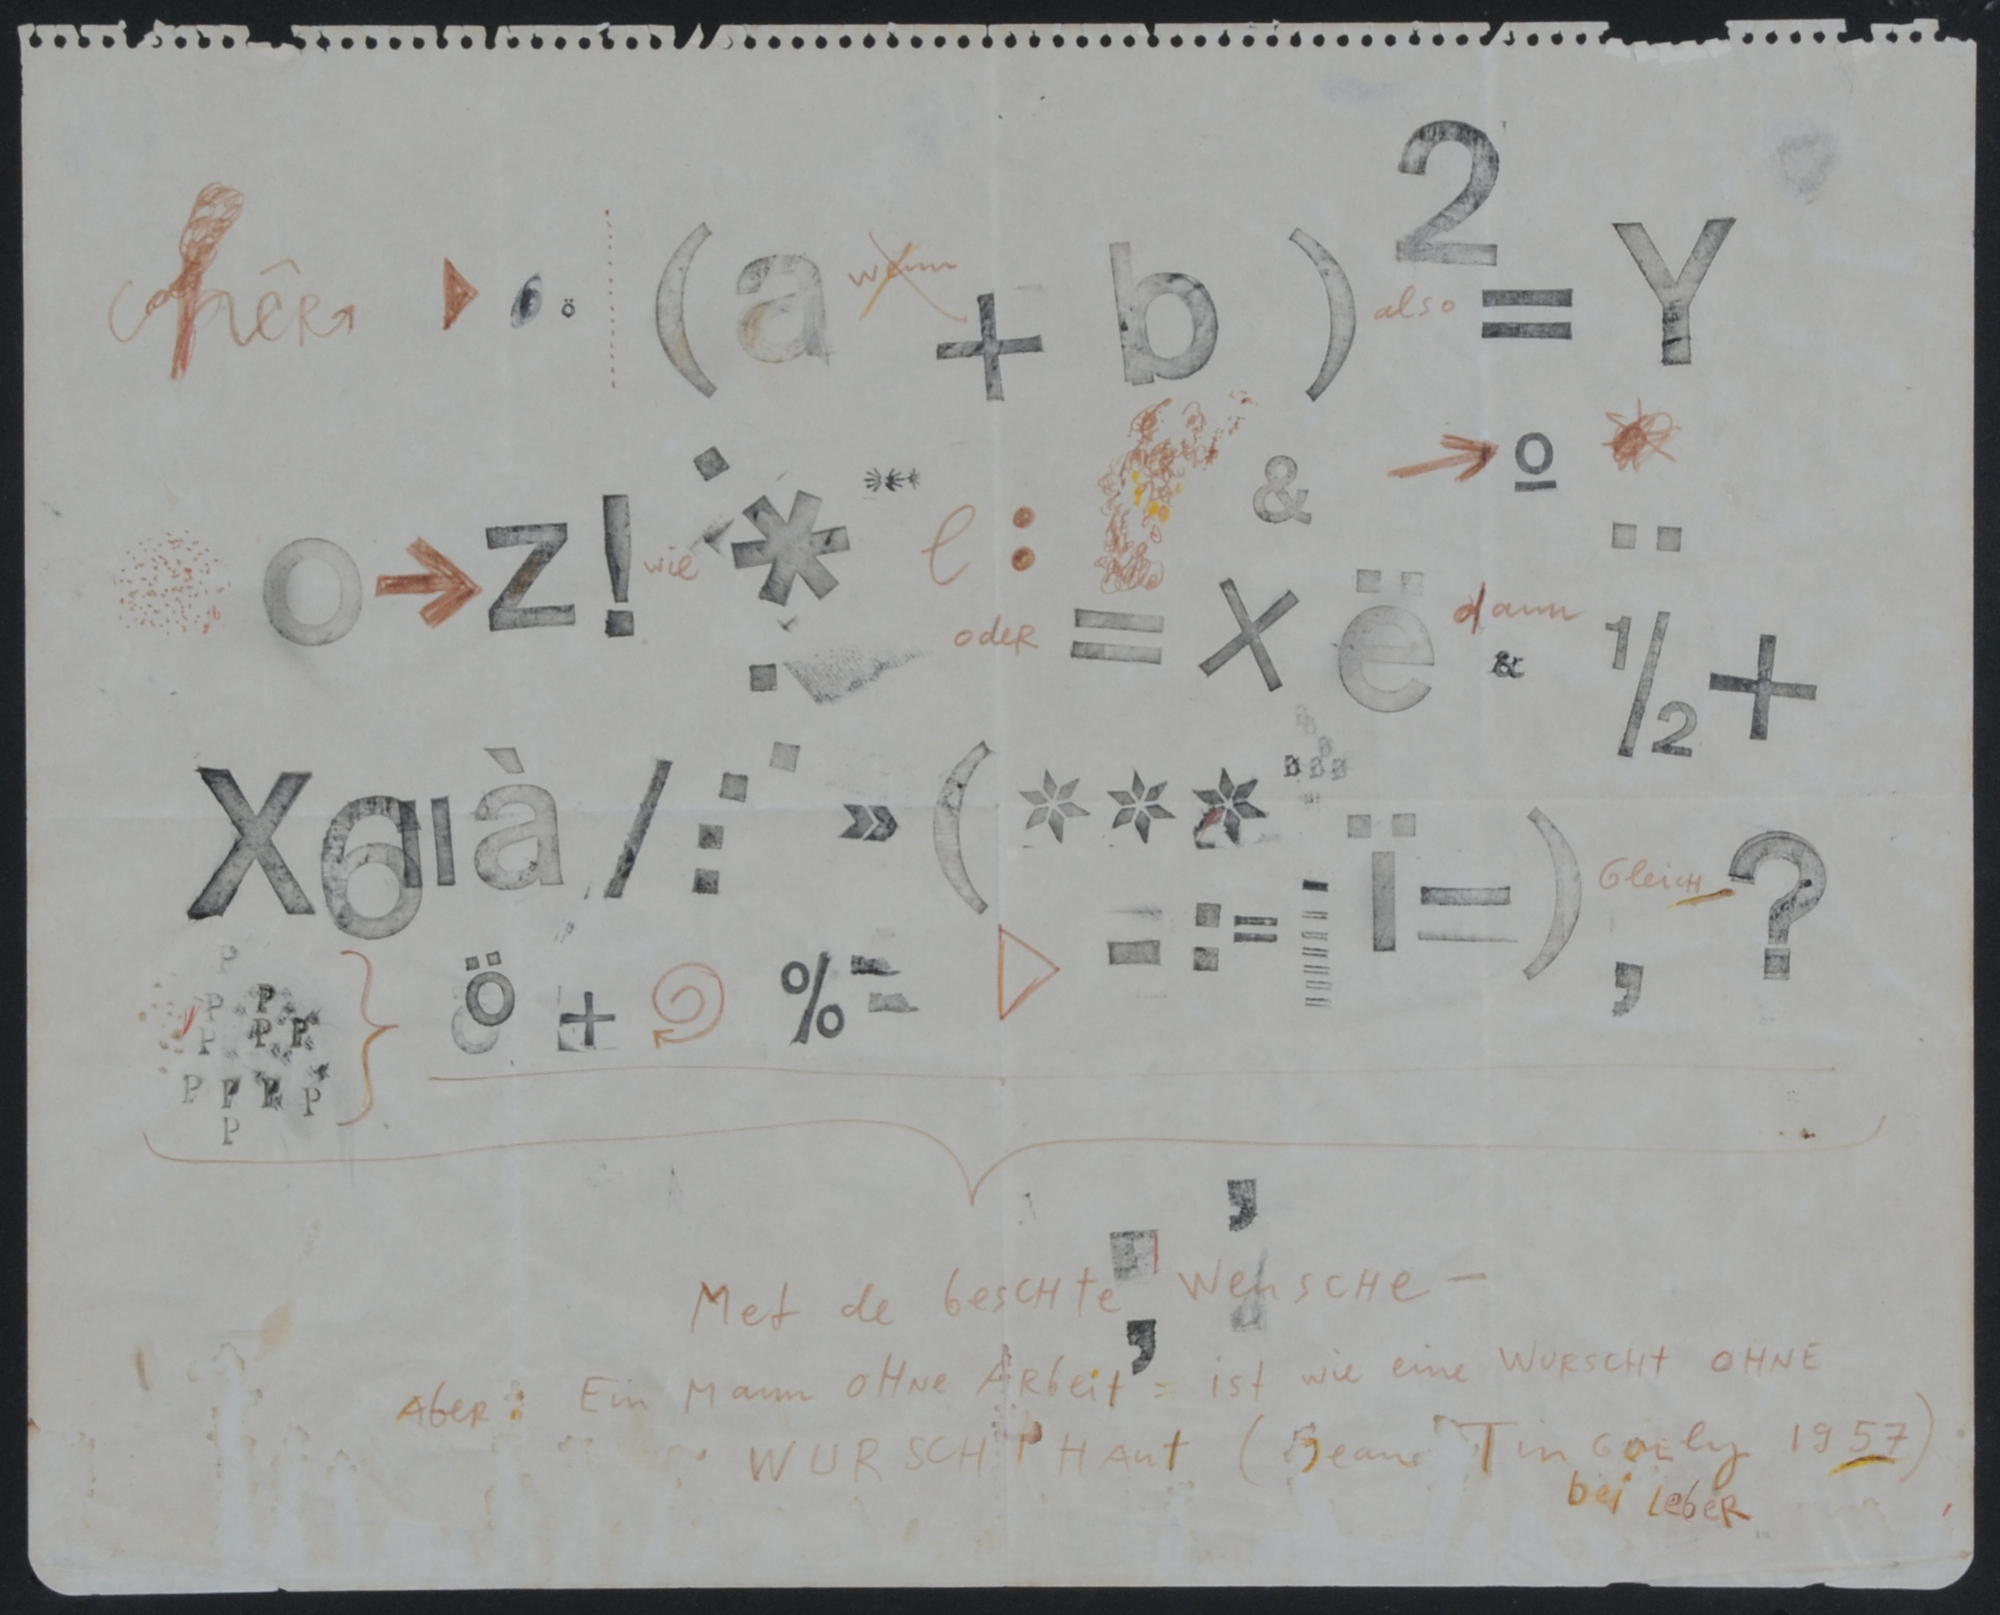 chêr ö (a wenn + b)² also = Y
o → z! wie * *** l : & → o
oder = X ë dann & ½ +
X 6 ı à / : » (*** ï =) Gleich , ?
- : =
P P P P P P P P P P P } ö + % =
Met de beschte Wensche —
Aber: Ein Mann OHNe ARbeit = ist wie eine WURSCHT OHNE
WURSCHTHAut (Jean Tinguely 1957)
bei LebeR